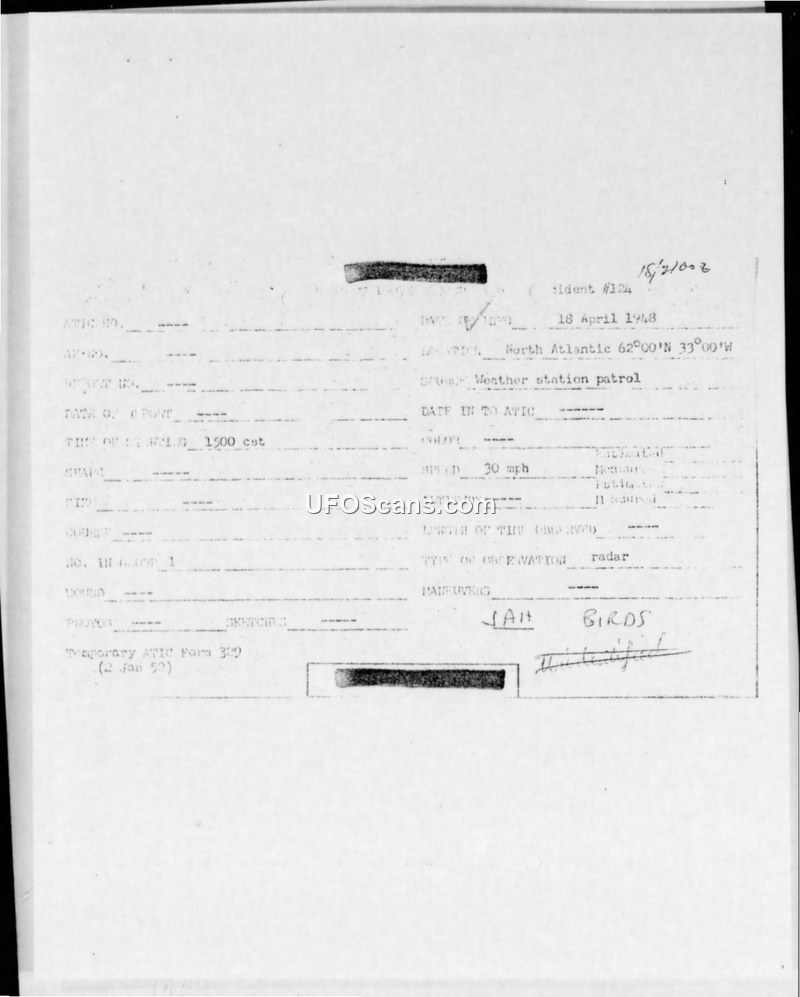 #124
ATIC NO. ---- 18 April 1948
---- LOCATION North Atlantic 62°00'N 33°00'W
NO. ---- SOURCE Weather station patrol
DATE OF REPORT ---- DATE IN TO ATIC ------
TIME OF SIGHTING 1500 cst COLOR ----
Estimated
SHAPE ----- SPEED 30 mph Measured
Estimated
SIZE ---- ALTITUDE ---- Measured
COURSE ---- LENGTH OF TIME OBSERVED ----
NO. IN GROUP 1 TYPE OF OBSERVATION radar
SOUND ---- MANEUVERS ----
PHOTOS ---- SKETCHES ----- JAH BIRDS
Temporary ATIC Form 329 Unidentified
(2 Jan 52)
UFOScans.com